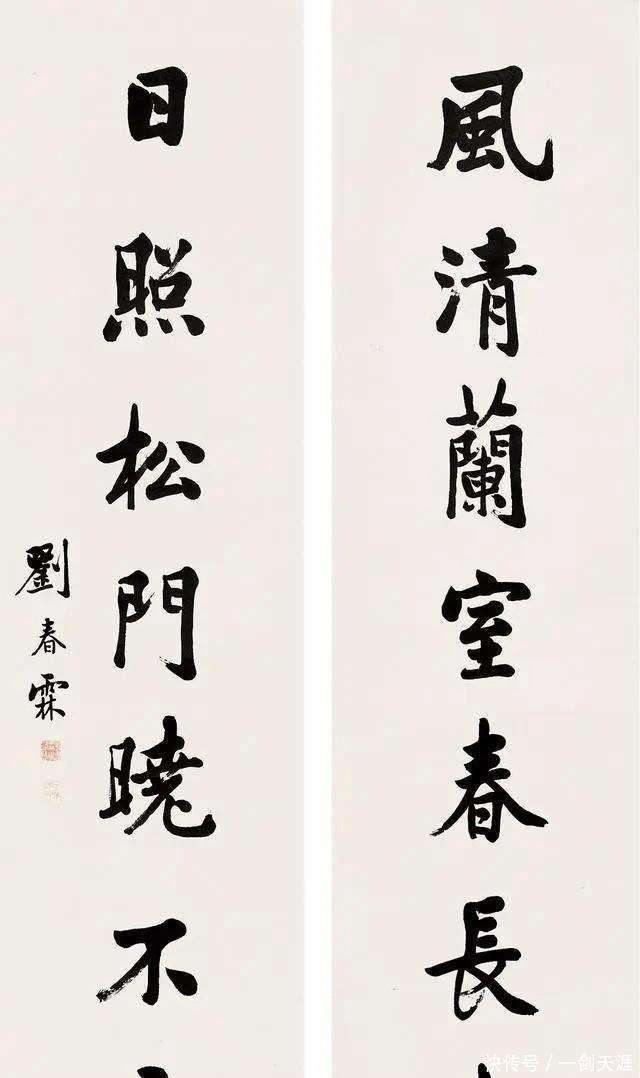 風清蘭室春長
日照松門曉不
劉春霖
快传号 / 一剑天涯